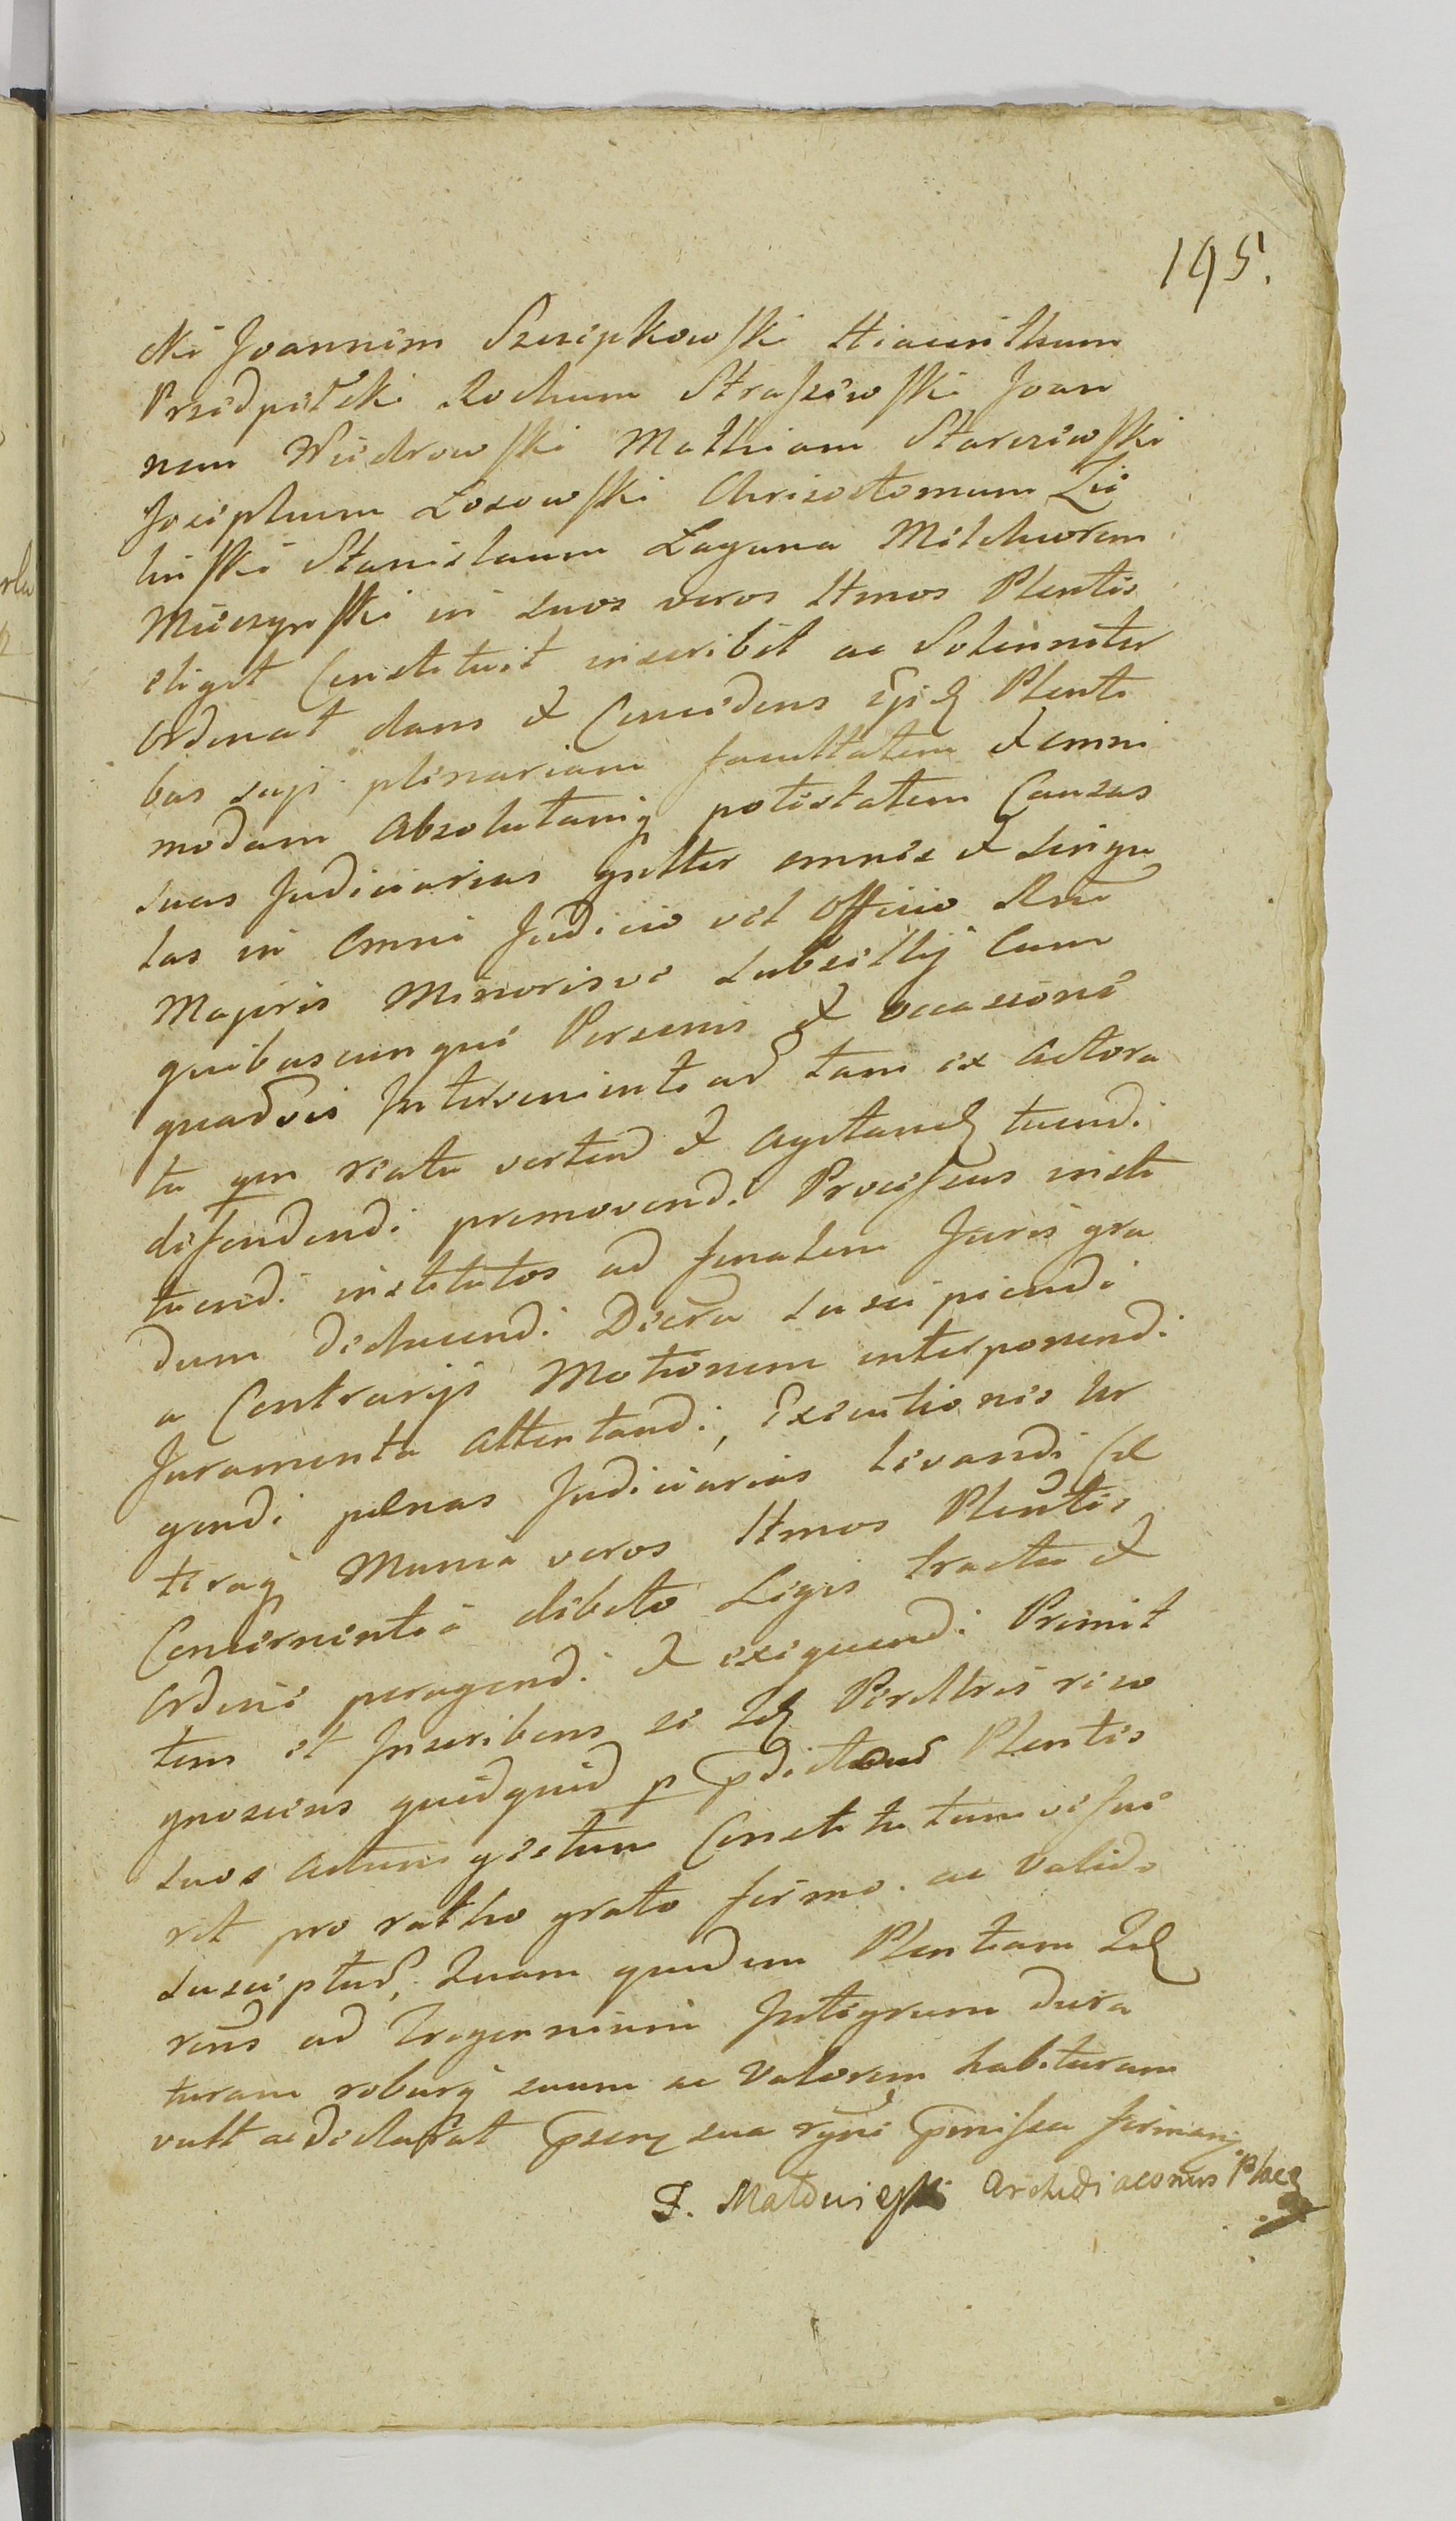 195.
cki Joannem Szczepkowski Hiacinthum
Przedpełski Rochum Straszewski Joan
nem Wiedrowski Mathiam Starczewski
Josephum Łosowski Chrisostomum Zie
liński Stanislaum Łaguna Melchiorem
Mieczyński in suos veros Ltmos Plentes
eligit Constituit inscribit ac Solenniter
Ordinat dans et Concedens Plenti
bus suis plenariam facultatem et omni
modam Absolutamq potestatem Causas
suas Judiciarias gnlter omnes et Singu
las in Omni Judicio vel Officio Rni
Majoris Minorisve Subsellij Cum
quibuscunque Personis et occasione
quadvis Intervenientead tam ex Actora
tu qm reatu verten et Agitand tuendi
defendendi promovendi Processus insti
tuendi institutos ad finalem Juris gra
dum deducendi Decra suscipiendi
a Contrarijs Motionem interponendi
Juramenta Attentandi, Executionis Ur
gendi pænas Judiciarias Levandi Cæ
teraq Munia veros Ltmos Plentes
Concernentia debito Legis tractu et
Ordine peragendi et exequendi Promit
tens et Inscribens se Perillris reco
gnoscens quidquid p pdictos Plentes
suos actum gestum Constitutumve fue
rit pro ratho grato firmo ac Valido
suscepturum, Quam quidem Plentiam
rens ad Tregennium Integrum dura
turam roburq suum ac Valorem habituram
vult ac declarat sua pmissa
F. Matdziejski Archidiaconus Płoc